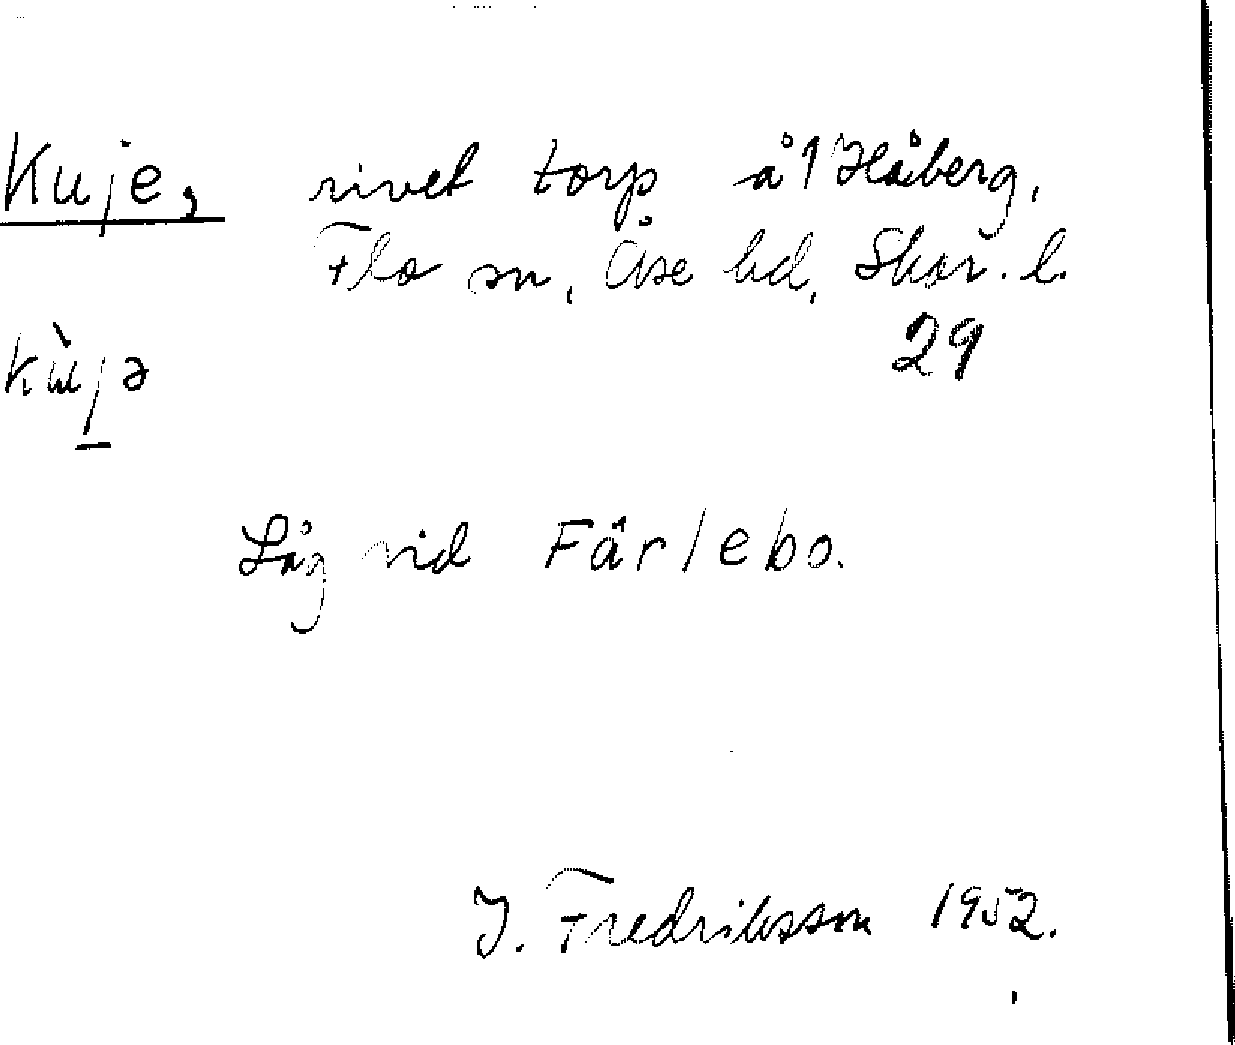 Kuje, rivet torp å 1 Håberg,
Flo sn, Åse hd, Skar. l.
29
kùjə
Låg vid Fårlebo.
J. Fredriksson 1952.